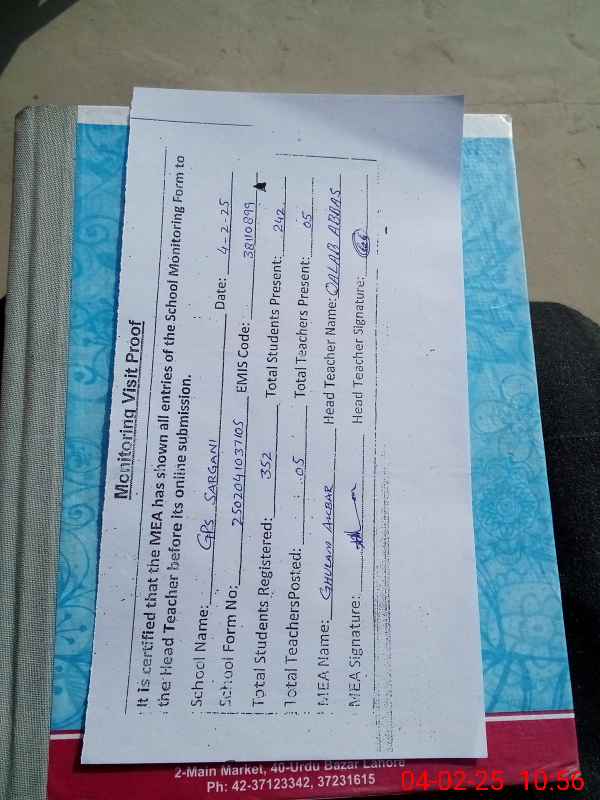 Monitoring Visit Proof
It is certified that the MEA has shown all entries of the School Monitoring Form to
the Head Teacher before its online submission.
School Name: GPS SARGANI Date: 4-2-25
School Form No: 2502041037105 EMIS Code: 38110899
Total Students Registered: 352 Total Students Present: 242
Total Teachers Posted: 05 Total Teachers Present: 05
MEA Name: GHULAM AKBAR Head Teacher Name: QALAB ABBAS
MEA Signature: Head Teacher Signature:
2-Main Market, 40-Urdu Bazar Lahore
Ph: 42-37123342, 37231615
04-02-25 10:56